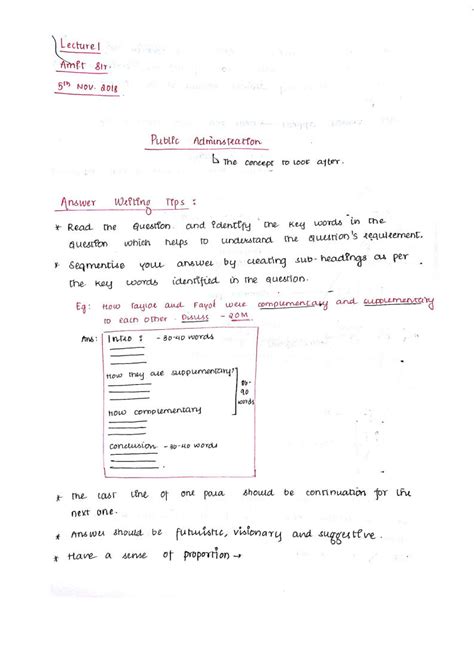 Lecture 1
Amit Sir
5th Nov. 2018
Public Administration
↳ The concept to look after.
Answer Writing Tips :
* Read the Question and identify the key words in the
question which helps to understand the question's requirement.
* Segmentise your answer by creating sub-headings as per
the key words identified in the question.
Eg: How Taylor and Fayol were complementary and supplementary
to each other. Discuss - 20M.
Ans: Intro : - 30-40 words
How they are supplementary?
80-
90
words
How complementary
conclusion - 30-40 words
* The last line of one para should be continuation for the
next one.
* Answer should be futuristic, visionary and suggestive.
* Have a sense of proportion →